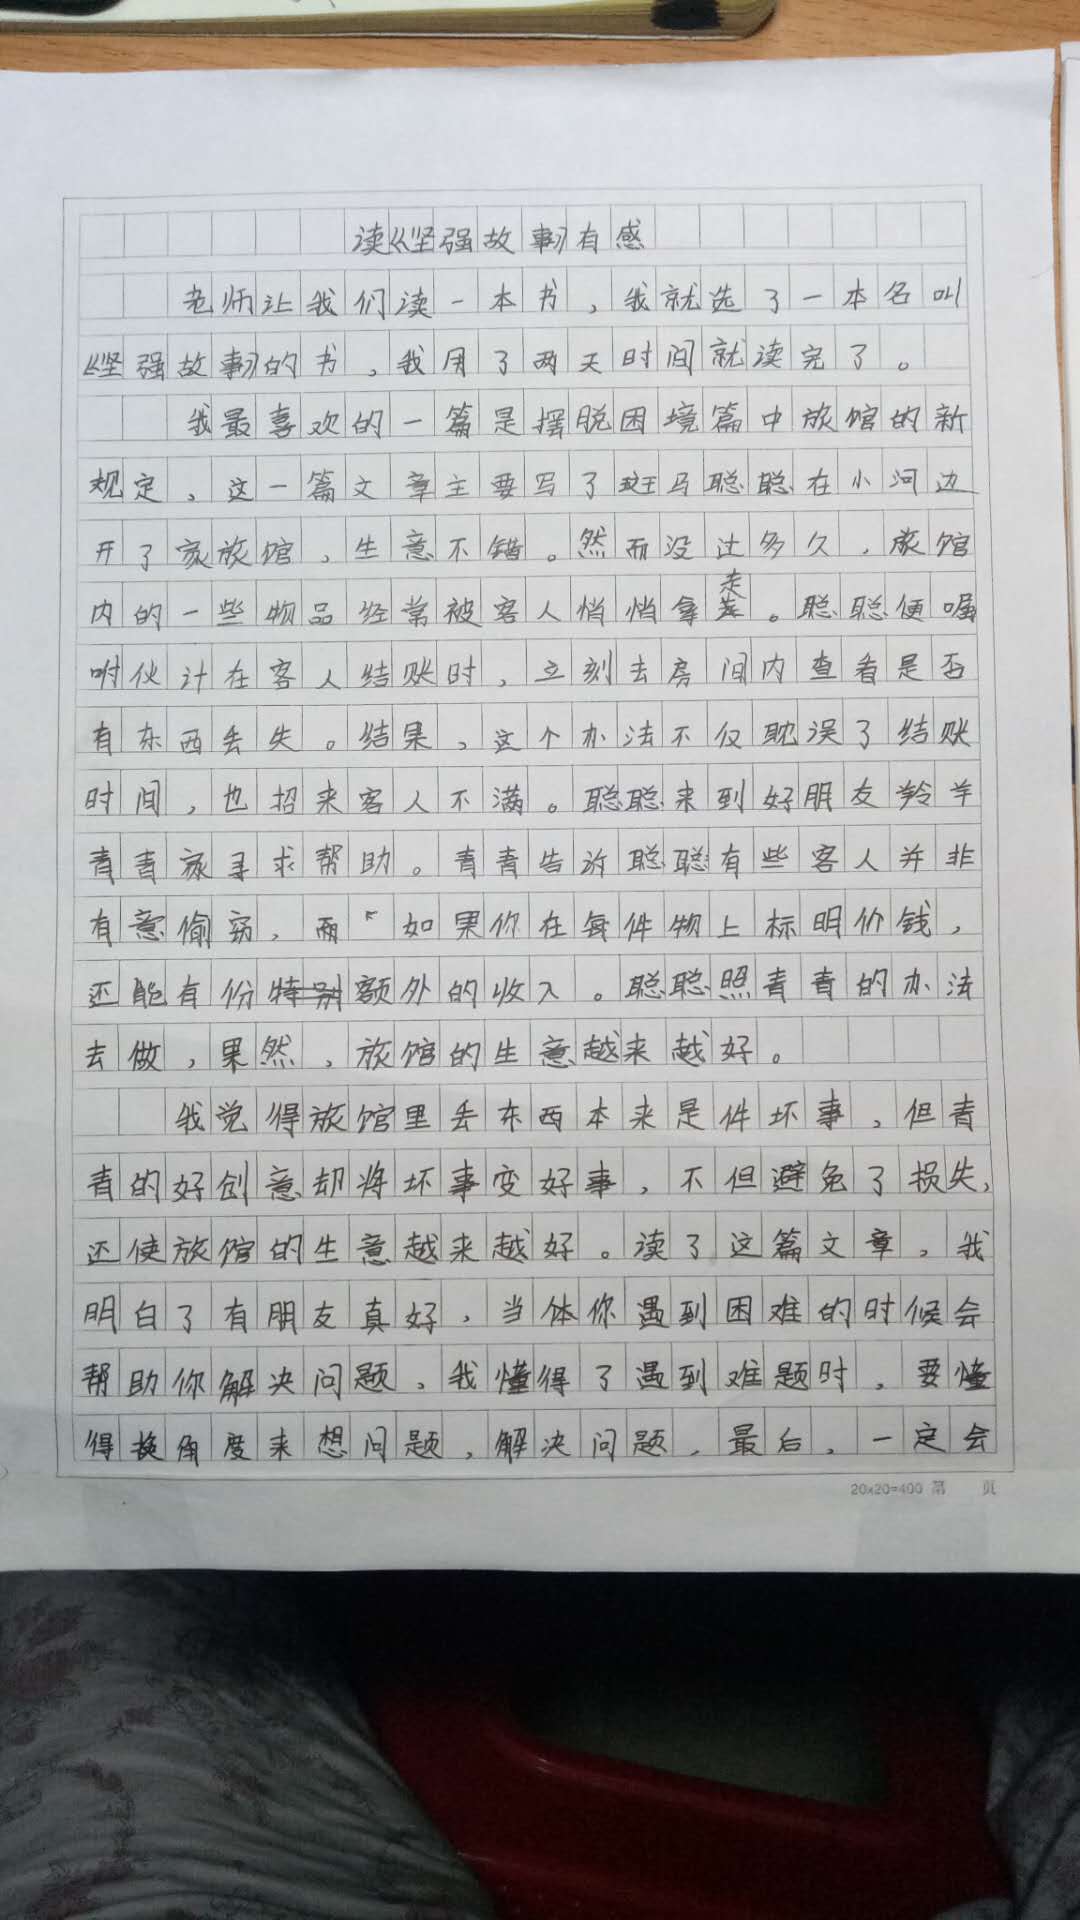 读《坚强故事》有感
老师让我们读一本书，我就选了一本名叫
《坚强故事》的书，我用了两天时间就读完了。
我最喜欢的一篇是摆脱困境篇中旅馆的新
规定，这一篇文章主要写了斑马聪聪在小河边
开了家旅馆，生意不错。然而没过多久，旅馆
内的一些物品经常被客人悄悄拿走。聪聪便嘱
咐伙计在客人结账时，立刻去房间内查看是否
有东西丢失。结果，这个办法不仅耽误了结账
时间，也招来客人不满。聪聪来到好朋友羚羊
青青家寻求帮助。青青告诉聪聪有些客人并非
有意偷窃，而“如果你在每件物上标明价钱，
还能有份额外的收入。聪聪照青青的办法
去做，果然，旅馆的生意越来越好。
我觉得旅馆里丢东西本来是件坏事，但青
青的好创意却将坏事变好事，不但避免了损失，
还使旅馆的生意越来越好。读了这篇文章，我
明白了有朋友真好，当体你遇到困难的时候会
帮助你解决问题，我懂得了遇到难题时，要懂
得换角度来想问题，解决问题，最后，一定会
20×20=400 第 页